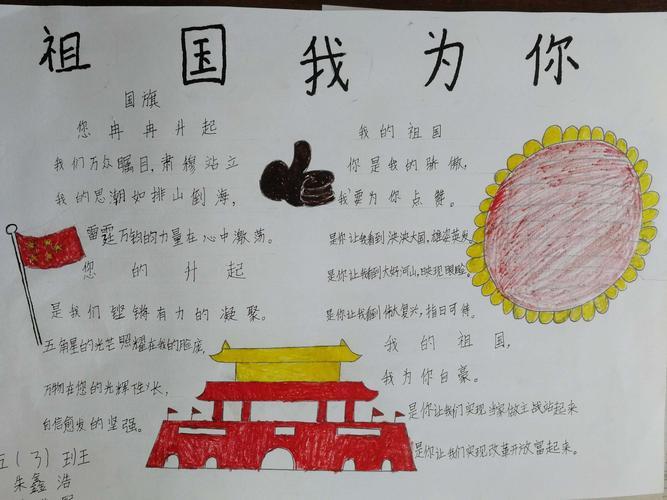 祖国我为你
国旗
您冉冉升起
我们万众瞩目,肃穆站立
我的思潮如排山倒海,
雷霆万钧的力量在心中激荡。
您的升起
是我们铿锵有力的凝聚。
五角星的光芒照耀在我的脸庞,
万物在您的光辉下成长,
自信愈发的坚强。
五(3)班王
朱鑫浩
我的祖国
你是我的骄傲,
我要为你点赞。
是你让我看到泱泱大国,雄姿英发。
是你让我看到大好河山,
是你让我看到伟大复兴,指日可待。
我的祖国,
我为你自豪。
是你让我们实现当家做主战站起来
是你让我们实现改革开放富起来。